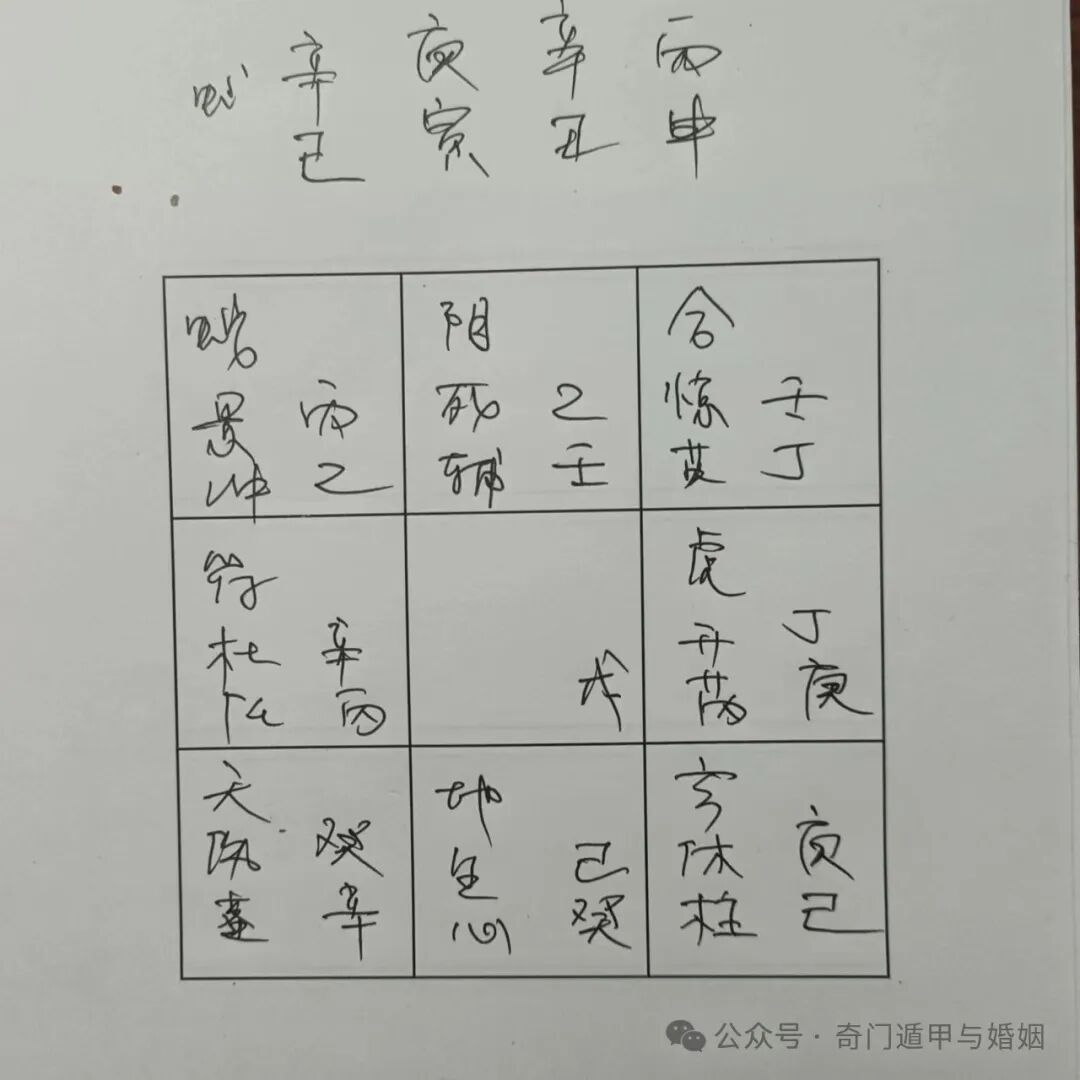 辛 庚 辛 丙
巳 寅 丑 申
蛇
景 丙
冲 乙
阴
死 乙
辅 壬
合
惊 壬
英 丁
符
杜 辛
任 丙
戊
虎
开 丁
芮 庚
天
伤 癸
蓬 辛
地
生 己
心 癸
玄
休 庚
柱 己
公众号·奇门遁甲与婚姻